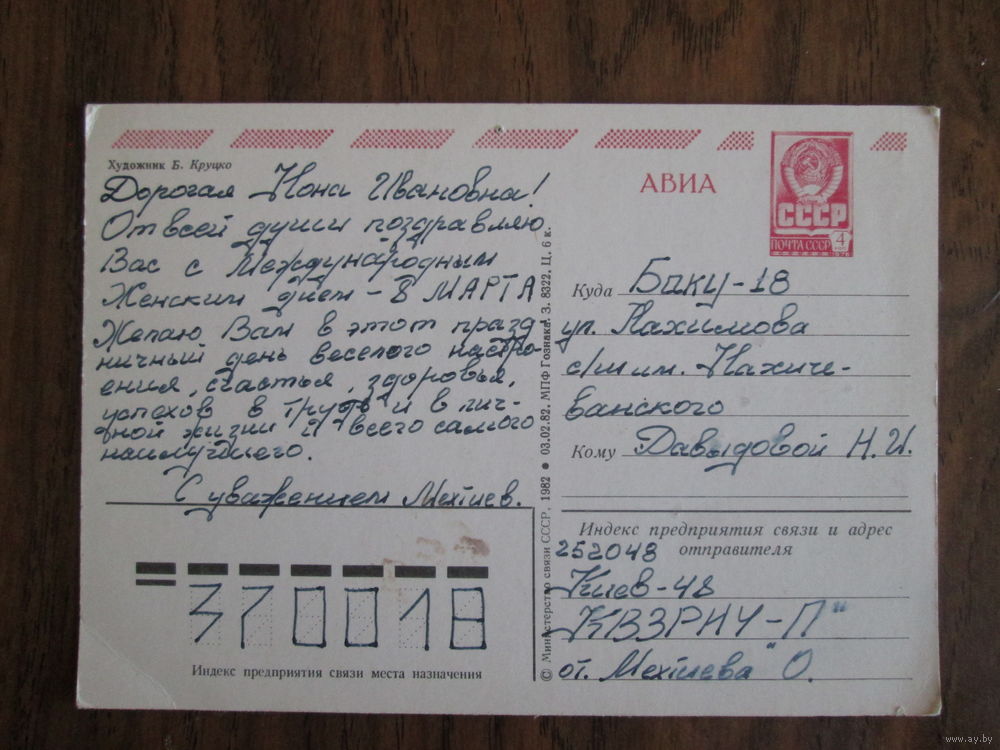 Художник Б. Круцко
Дорогая Нона Ивановна!
От всей души поздравляю
Вас с Международным
Женским днем - 8 МАРТА
Желаю Вам в этот празд-
ничный день веселого настро-
ения, счастья, здоровья,
успехов в труде и в лич-
ной жизни и всего самого
наилучшего.
С уважением Мехтиев.
370018
Индекс предприятия связи места назначения
© Министерство связи СССР, 1982 ● 03.02.82. МПФ Гознака. З. 8322. Ц. 6 к.
АВИА
СССР
ПОЧТА СССР 4
КОП
Куда Баку-18
ул. Нахимова
с/ш им. Нахиче-
ванского
Кому Давыдовой Н.И.
Индекс предприятия связи и адрес
252048 отправителя
Киев-48
КВЗРИУ-П"
от. Мехтиева "О.
www.ay.by